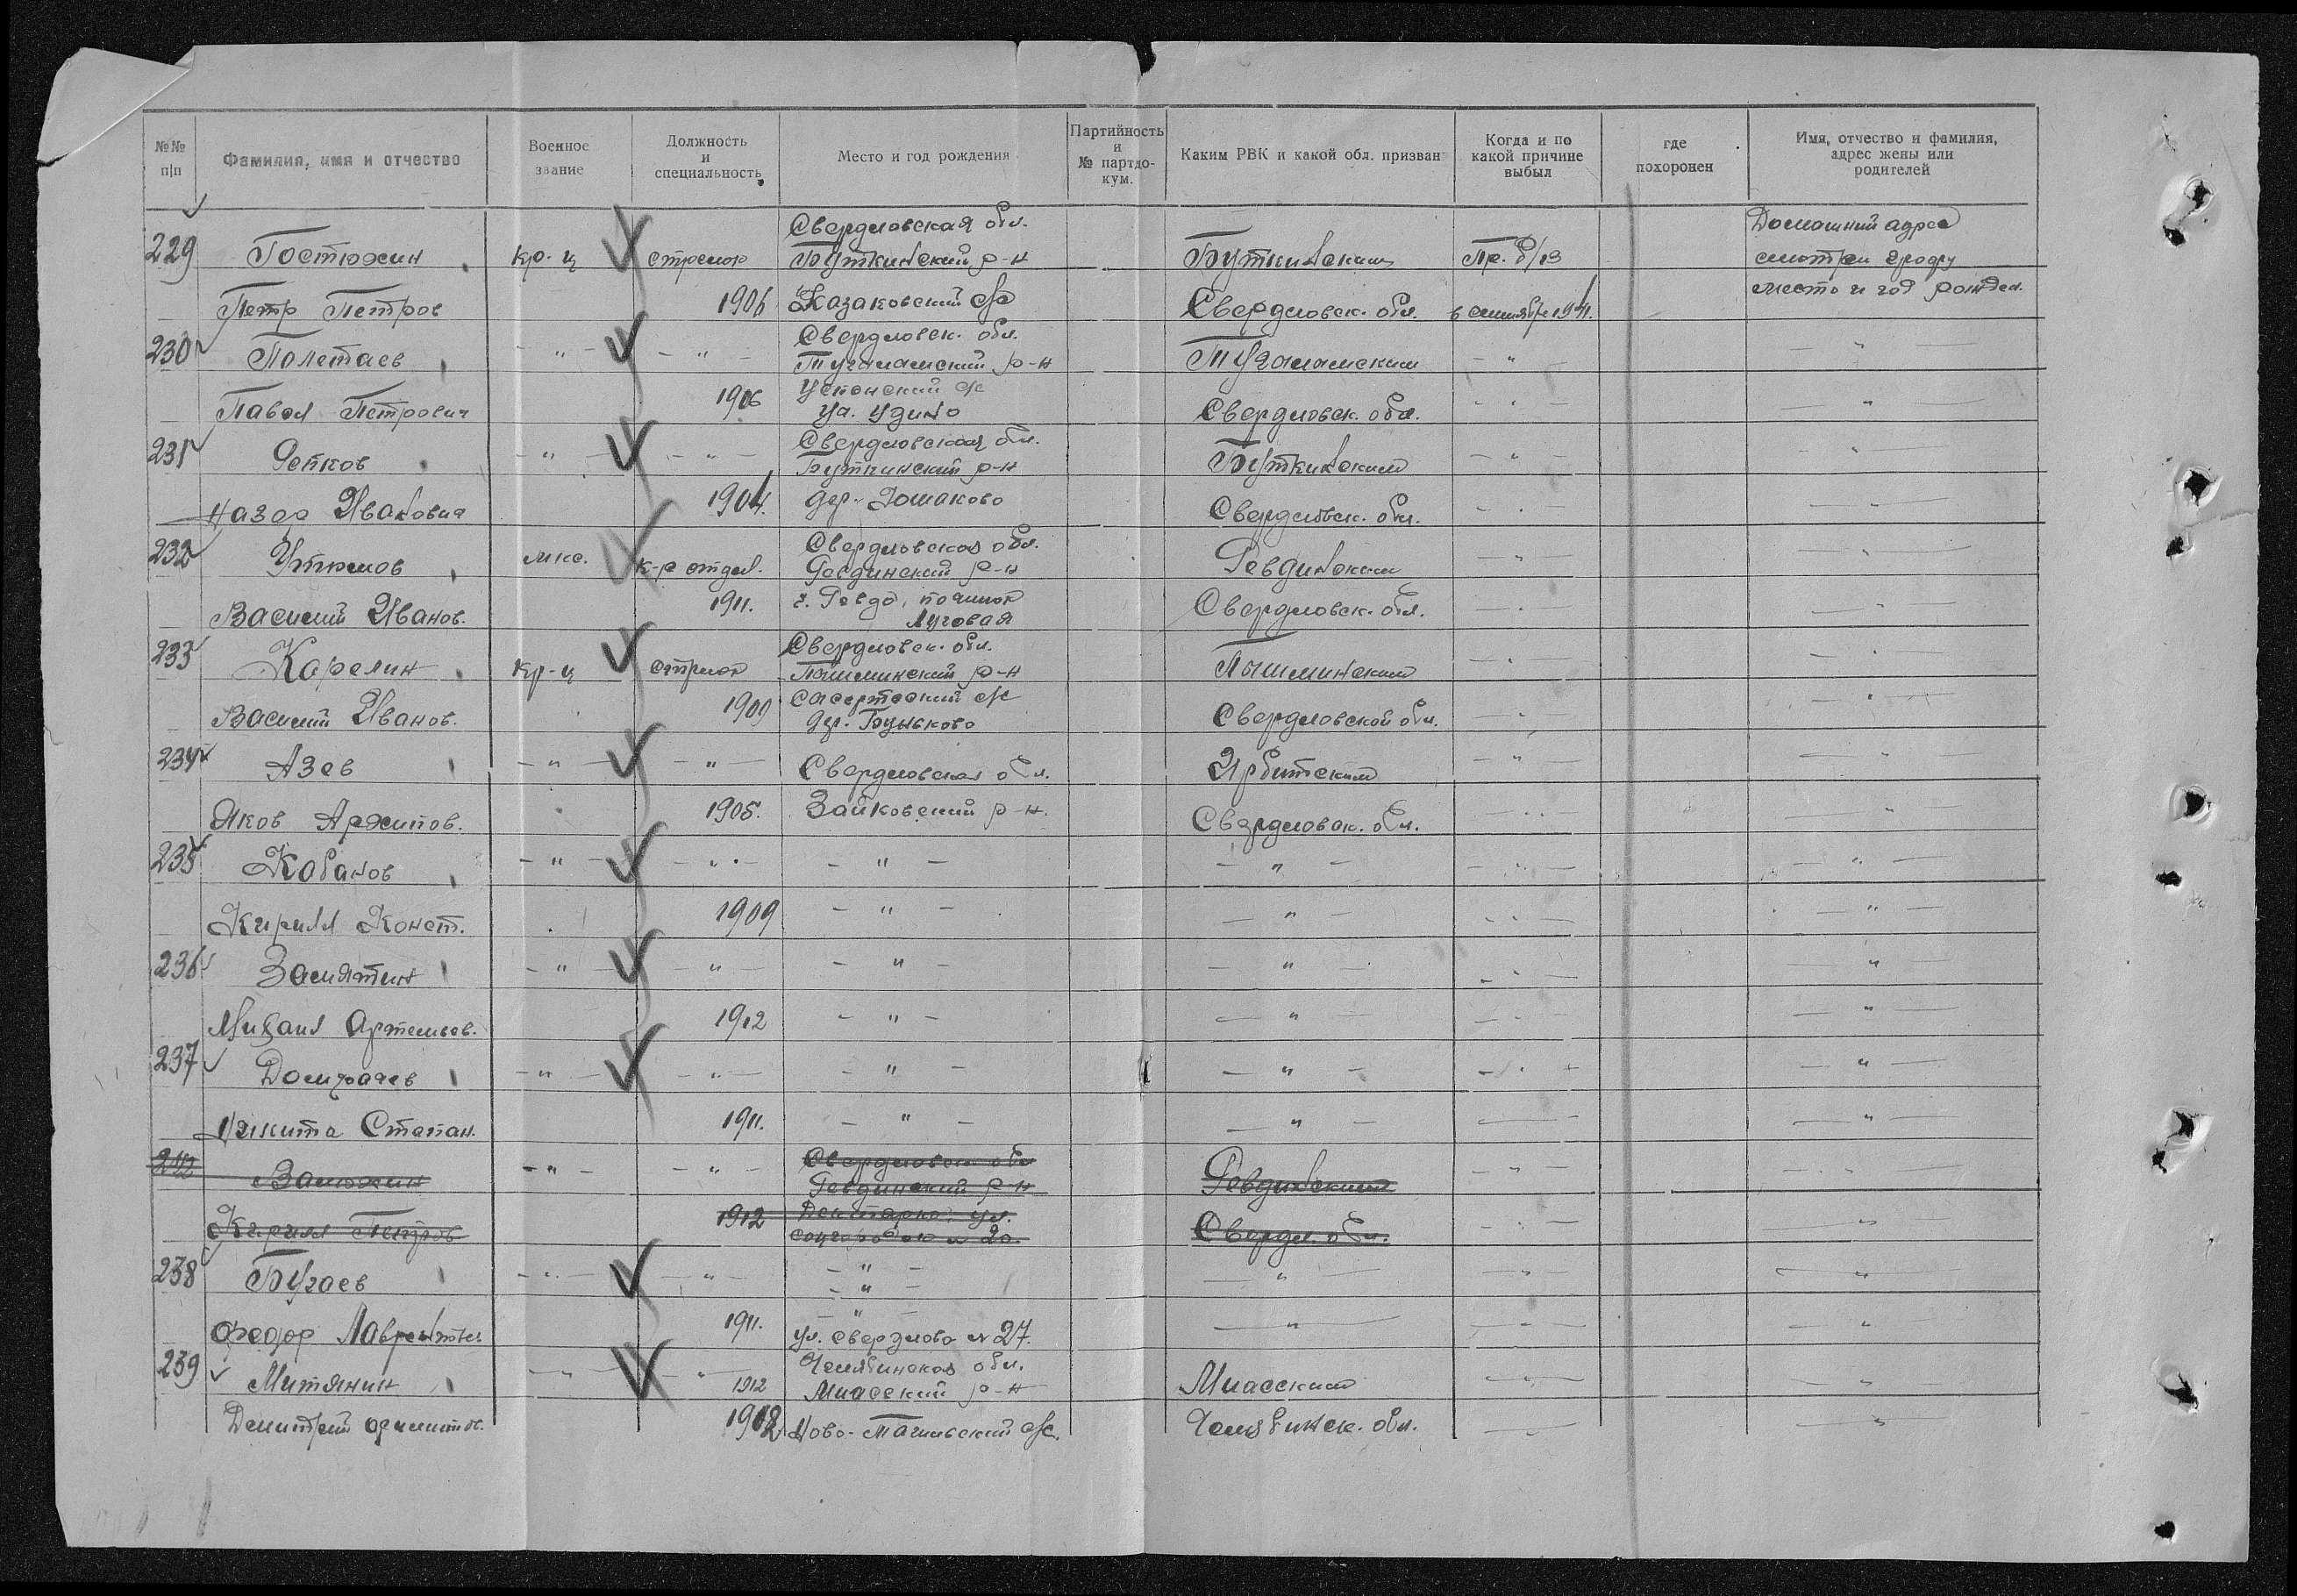 №№ п/п | Фамилия, имя и отчество | Военное звание | Должность и специальность | Место и год рождения | Партийность и № партдокум. | Каким РВК и какой обл. призван | Когда и по какой причине выбыл | где похоронен | Имя, отчество и фамилия, адрес жены или родителей
Свердловская обл. | Домашний адрес
229 Гостюхин кр-ц стрелок Буткинский р-н Буткинским Пр. б/в смотри графу
Петр Петров 1906 Казаковский с/с Свердловск. обл. в сентябре 1941. место и год рожден.
Свердловск. обл.
230 Полетаев - " - - " - Тугулымский р-н Тугулымским - " - - " -
Успенский с/с
Павел Петрович 1906 Свердловск. обл. - " - - " -
Свердловская обл.
231 Репков - " - - " - Буткинский р-н Буткинским - " - - " -
Назар Иванович 1904. дер. Свердловск. обл. - " - - " -
Свердловская обл.
232 Утюмов мкс. к-р отдел. Ревдинский р-н Ревдинским - " - - " -
Василий Иванов. 1911. г. Ревда, Свердловск. обл. - " - - " -
Луговая
Свердловск. обл.
233 Карелин кр-ц стрелок Пышминский р-н Пышминским - " - - " -
с/с
Василий Иванов. 1909 дер. Свердловской обл. - " - - " -
234 Азев - " - - " - Свердловская обл. Ирбитским - " - - " -
Яков Архипов. 1905. Зайковский р-н. Свердловск. обл. - " - - " -
235 Кабанов - " - - " - - " - - " - - " - - " -
Кирилл Конст. 1909 - " - - " - - " - - " -
236 Замятин - " - - " - - " - - " - - " - - " -
Михаил Артемьев. 1912 - " - - " - - " - - " -
237 Домрачев - " - - " - - " - - " - - " - - " -
Никита Степан. 1911. - " - - " - - " -
Свердловск обл
Замохин - " - - " - Ревдинский р-н Ревдинским - " - - " -
Кирилл Петров 1912 ул. Свердл. обл. - " - - " -
соцгородок
238 Бугаев - " - - " - - " - - " - - " - - " -
- " -
- " -
Федор Лаврентьев 1911. ул. Свердлова № 27. - " - - " - - " -
Челябинская обл.
239 Митянин - " - - " - 1912 Миасский р-н Миасским - " - - " -
Дмитрий 1912 Ново-Тагильский с/с. Челябинск. обл. - " -